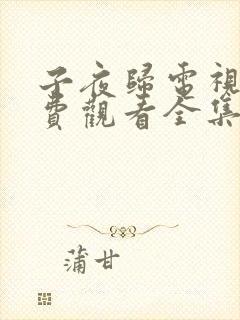 子夜歸電視
費觀看全集
蒲甘